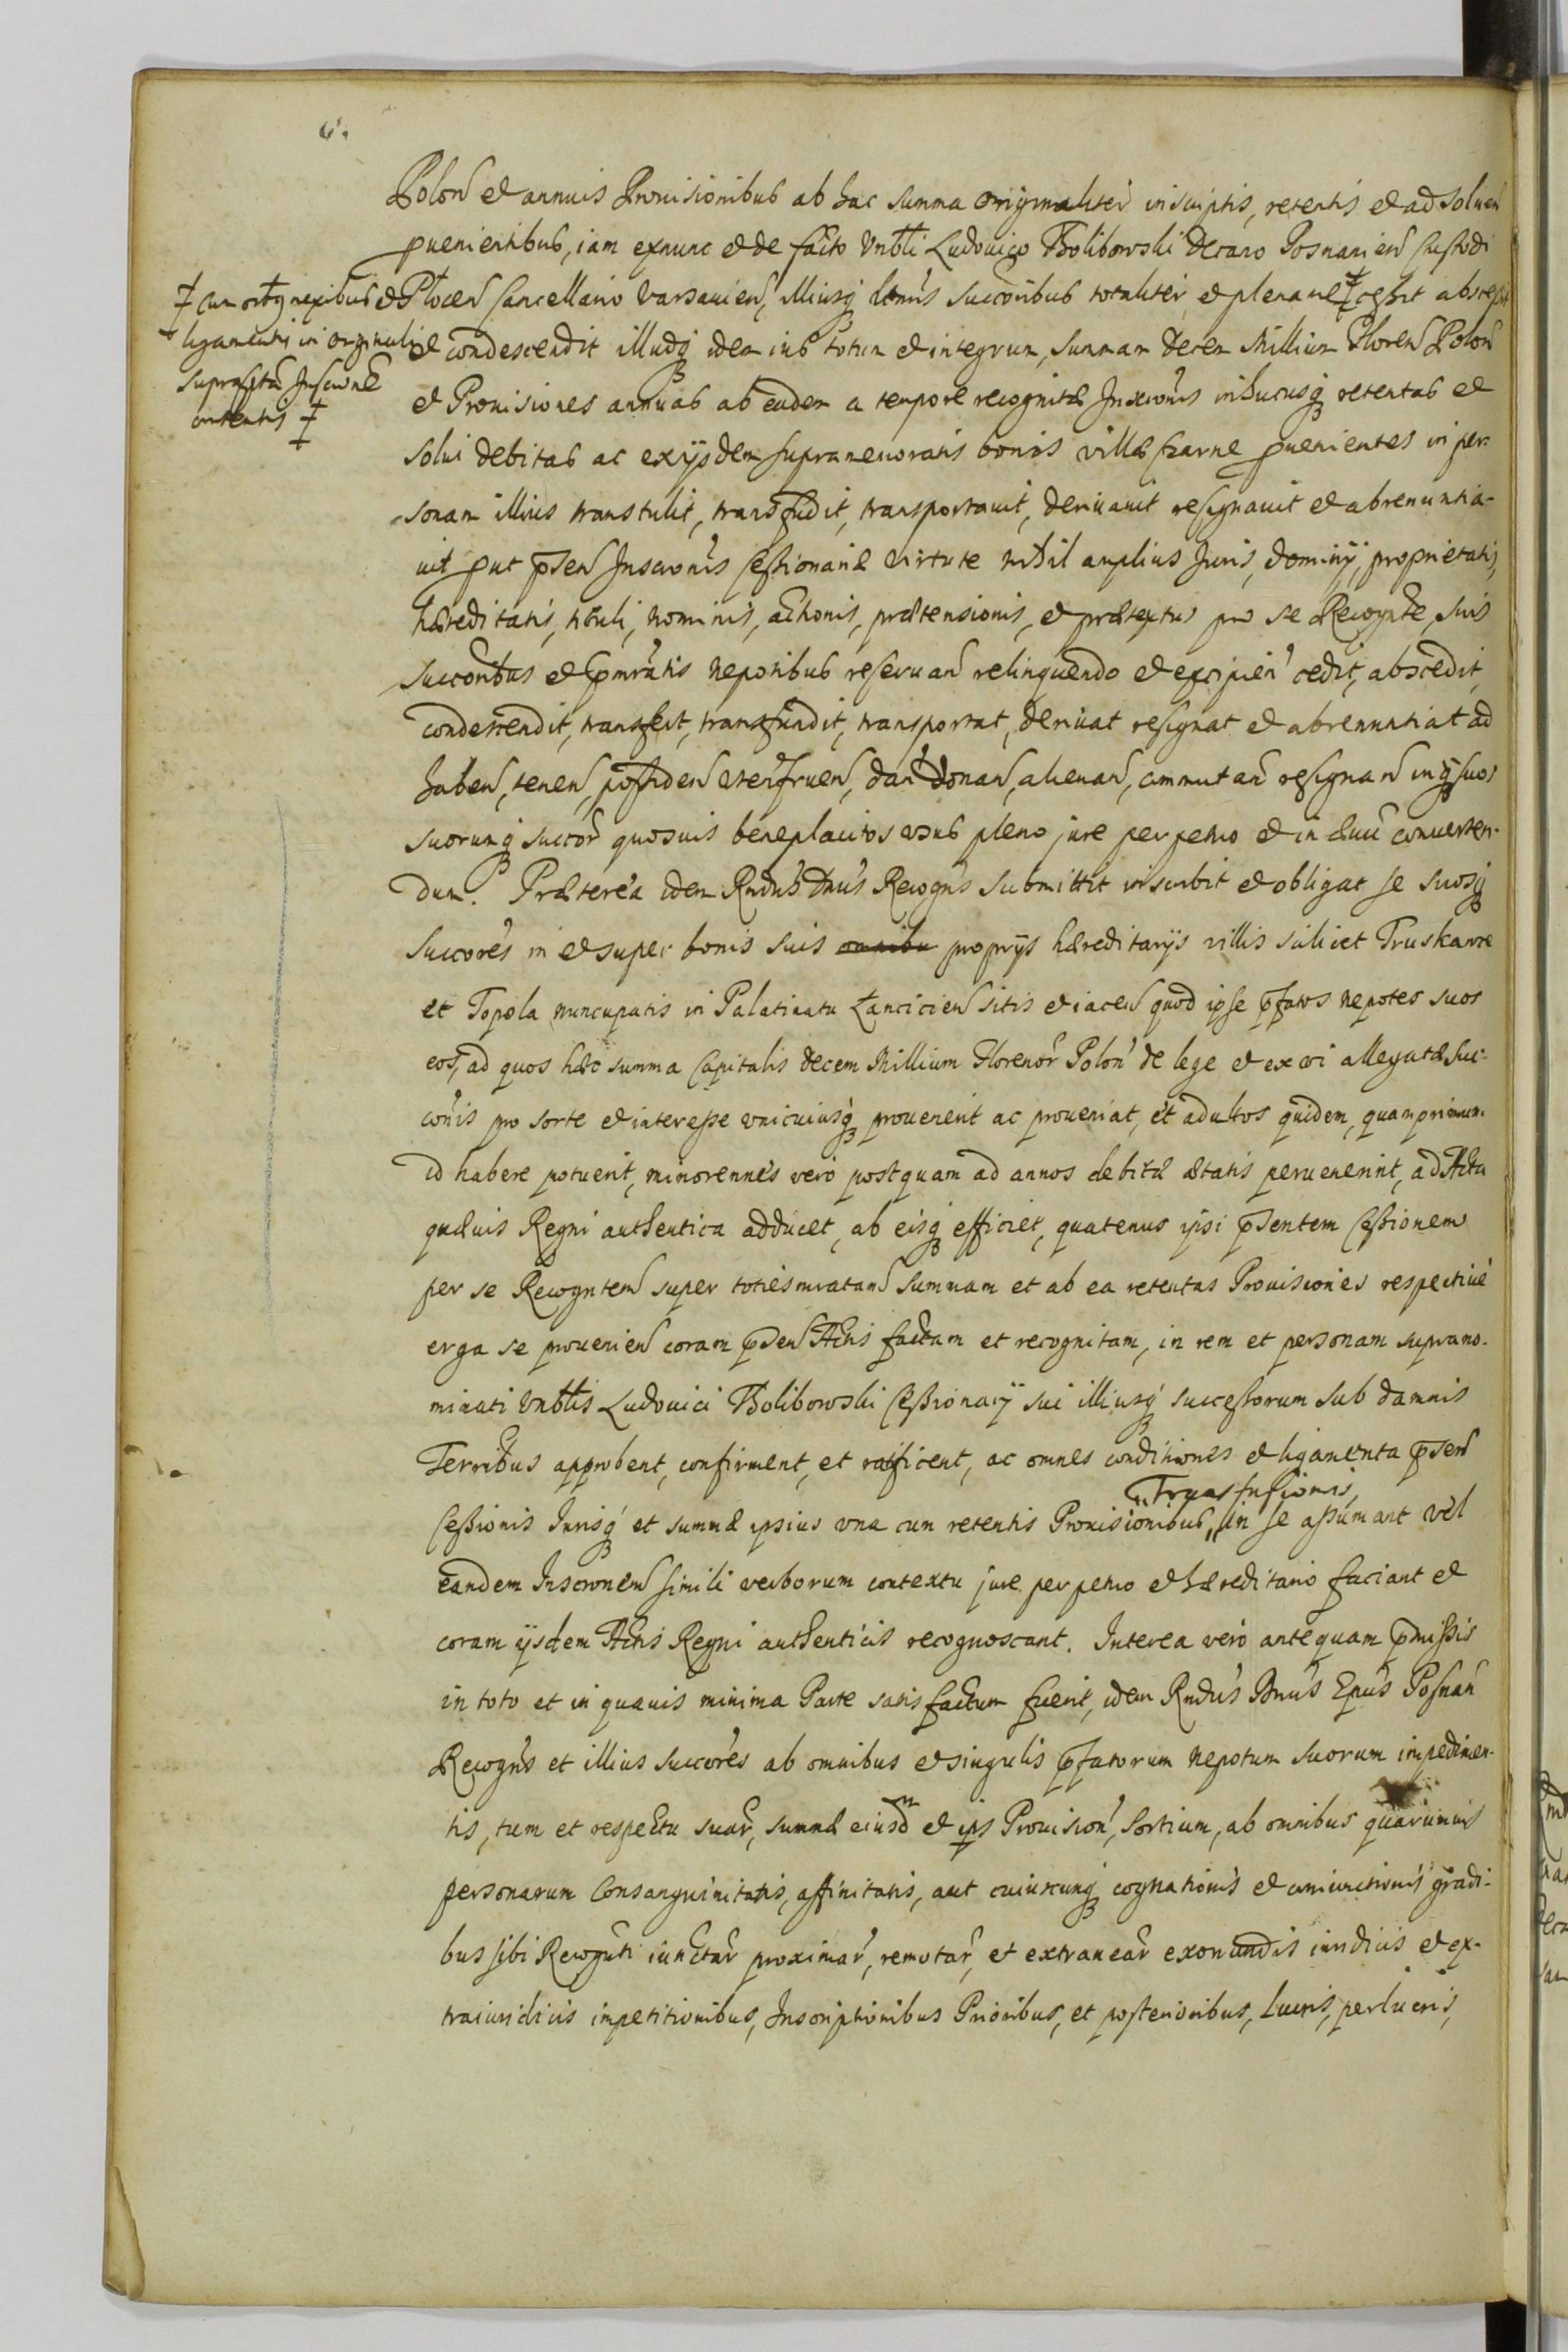 6.
Polon et annuis Provisionibus ab hac summa originaliter inscriptis, retentis et ad solven
pvenientibus, iam exnunc et de facto Vnbli Ludovico Bolibowski Decano Posnanien Custodi
Plocen Cancellario Varsavien, illiusq ltimis succoribus totaliter et plenarie ‡ cessit abscessit
‡ cum oibq nexibus et
ligamentis in originali
suprascta Inscrone
contentis ‡
et condescendit illudq idem ius totum et integrum, summam decem Millium Floren Polon
et Provisiones annuas ab eadem a tempore recognitæ Inscronis inhucusq retentas et
solui debitas ac ex ijsdem supramemoratis bonis villæ Czarne pvenientes in per-
sonam illius transtulit, transfudit, transportauit, deriuauit resignauit et abrenuntia-
uit put psen Inscronis Cessionariæ virtute nihil amplius Juris, dominij, proprietatis,
hæreditatis, tituli, nominis, actionis, prætensionis, et prætextus pro se Recognte, suis
succoribus et pmratis nepotibus reservan relinquendo et excipien cedit, abscedit,
condescendit, transfert, transfundit, transportat, deriuat resignat et abrenuntiat ad
haben, tenen, possiden vtenfruen, dan donan, alienan, commutan resignan inq suos
suorumq succor quosuis beneplacitos vsus pleno jure perpetuo et in æuu conuerten-
dum. Præterea idem Rndus Dnus Recogns submittit inscribit et obligat se suosq
succores in et super bonis suis omnibu proprijs hæreditarijs villis scilicet Truskawe
et Topola nuncupatis in Palatinatu Lancicien sitis et iacen quod ipse pfatos nepotes suos
eos, ad quos hæc summa Capitalis decem Millium Florenor Polon de lege et ex vi allegatæ Suc-
conis pro sorte et interesse vnicuiusq prouenerit ac proueniat, et adultos quidem, quamprimum
id habere potuerit, minorennes vero postquam ad annos debitæ ætatis peruenerint, ad Acta
quæuis Regni authentica adducet, ab eisq efficiet, quatenus ipsi psentem Cessionem
per se Recognten super totiesmratam Summam et ab ea retentas Prouisiones respectiue
erga se prouenien coram psen Actis factam et recognitam, in rem et personam suprano-
minati Vnblis Ludouici Bolibowski Cessionarij sui illiusq successorum sub damnis
Terribus approbent, confirment, et ratificent, ac omnes conditiones et ligamenta psen
Transfusionis,
Cessionis Jurisq et summæ ipsius vna cum retentis Prouisionibus, in se assumant vel
eandem Inscronem simili verborum contextu jure perpetuo et hæreditario faciant et
coram ijsdem Actis Regni authenticis recognoscant. Interea vero antequam pmissis
in toto et in quauis minima Parte satisfactum fuerit, idem Rndus Dnus Epus Posnan
Recogns et illius succores ab omnibus et singulis pfatorum nepotum suorum impedimen-
tis, tum et respectu suar, summæ eiusdm et ips Prouision, sortium, ab omnibus quarumuis
personarum Consanguinitatis, affinitatis, aut cuiuscunq cognationis et coniunctionis gradi-
bus sibi Recognti iunctar proximar, remotar, et extranear exoriundis iuridicis et ex-
traiuridicis impetitionibus, Inscriptionibus Prioribus, et posterioribus, lucris, perlucris,